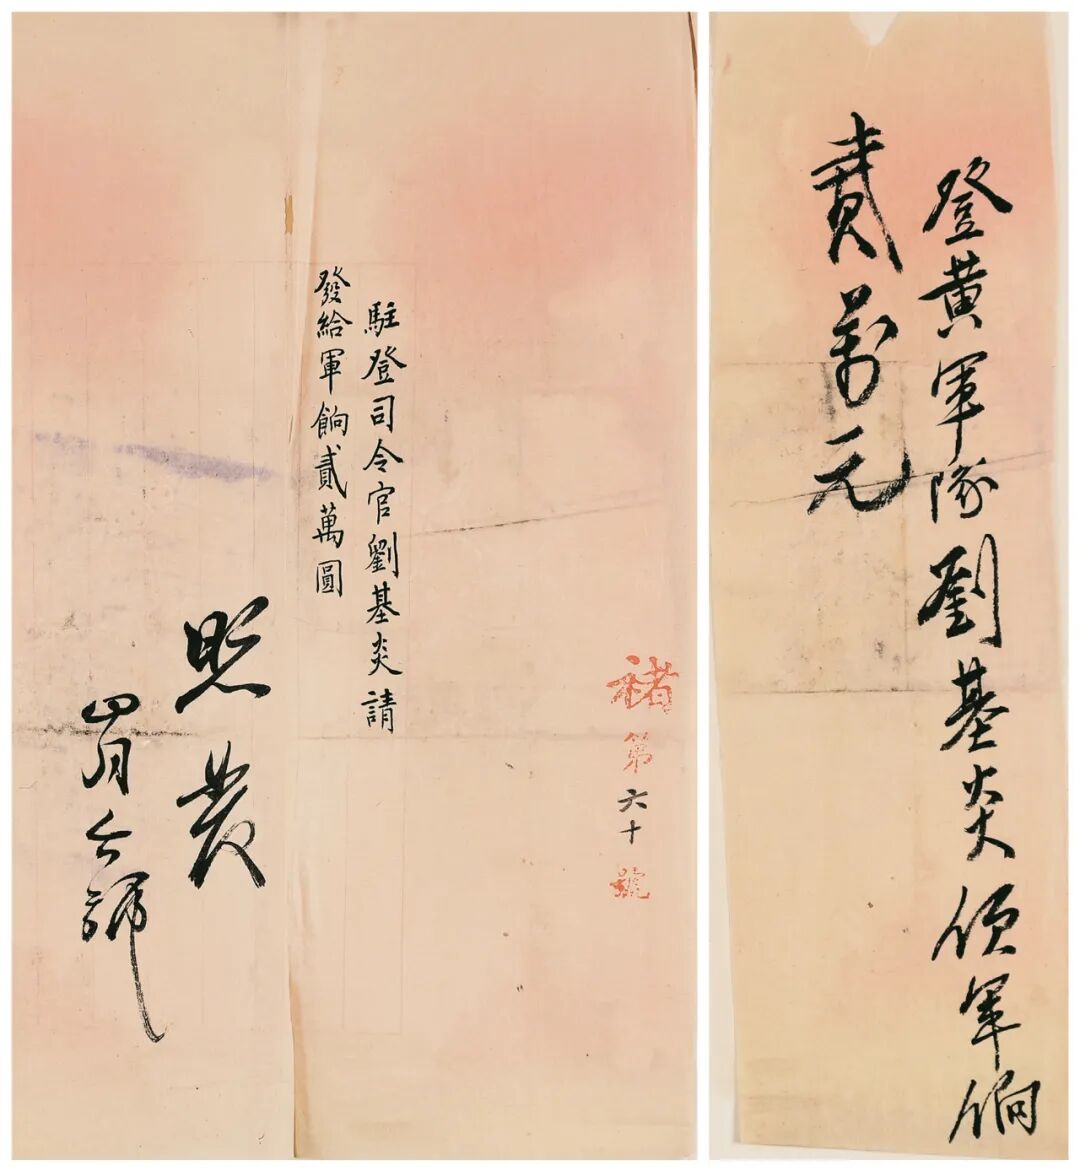 登黃軍隊劉基炎領軍餉
貳萬元
褚第六十號
駐登司令官劉基炎請
發給軍餉貳萬圓
照發
四月六號